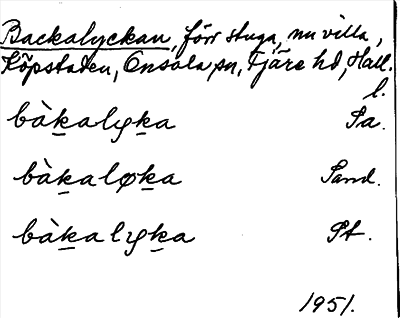 Backalyckan, förr stuga, nu villa,
Köpstaden, Onsala sn, Fjäre hd, Hall.
l.
bàk̲alyk̲a Sa.
bàk̲aløk̲a Sand.
bàk̲alyk̲a St.
1951.